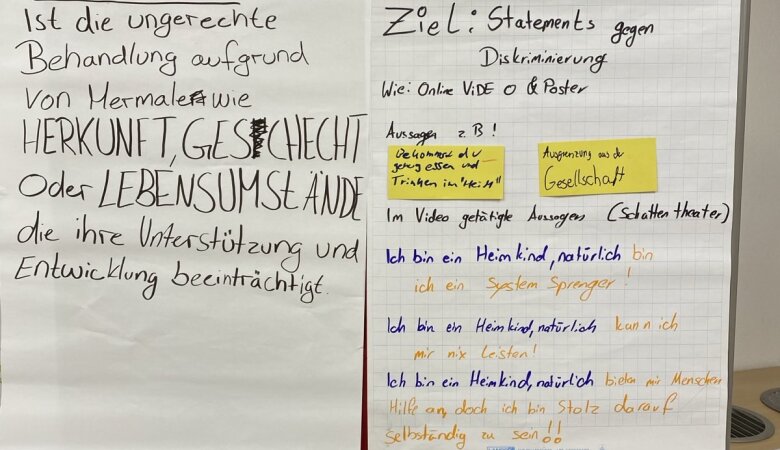 Ist die ungerechte
Behandlung aufgrund
von Mermale wie
HERKUNFT, GESCHECHT
Oder LEBENSUMStÄNDE
die ihre Unterstützung und
Entwicklung beeinträchtigt.
Ziel: Statements gegen
Diskriminierung
Wie: Online ViDEO & Poster
Aussagen z.B!
Bekommst du
genug essen und
Trinken im "Heim"
Ausgrenzung aus der
Gesellschaft
Im Video getätigte Aussagen (Schattentheater)
Ich bin ein Heimkind, natürlich bin
ich ein System Sprenger!
Ich bin ein Heimkind, natürlich kann ich
mir nix leisten!
Ich bin ein Heimkind, natürlich bieten mir Menschen
Hilfe an, doch ich bin Stolz darauf
selbständig zu sein!!